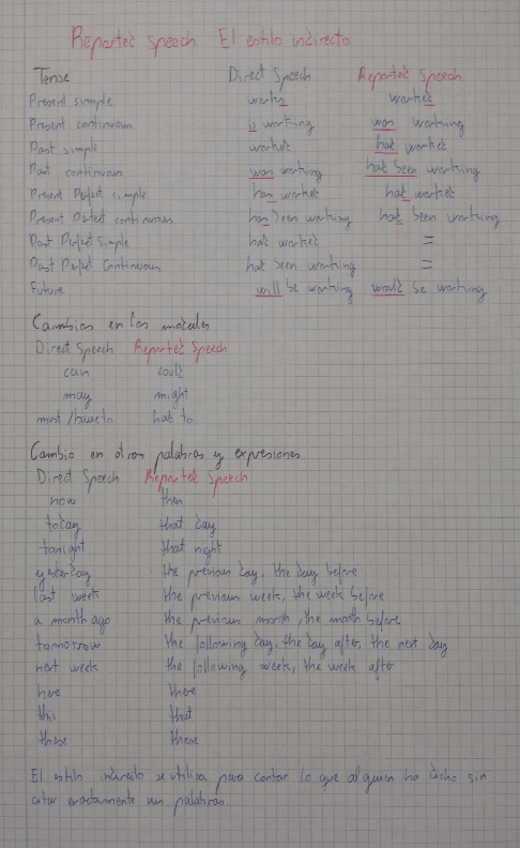 Reported speech El estilo indirecto
Tense Direct Speech Reported Speech
Present simple works worked
Present continuous is working was working
Past simple worked had worked
Past continuous was working had been working
Present Perfect simple has worked had worked
Present Perfect continuous has been working had been working
Past Perfect Simple had worked =
Past Perfect Continuous had been working =
Future will be working would be working
Cambios en los modales
Direct Speech Reported Speech
can could
may might
must/have to had to
Cambio en otras palabras y expresiones
Direct Speech Reported Speech
now then
today that day
tonight that night
yesterday the previous day, the day before
last week the previous week, the week before
a month ago the previous month, the month before
tomorrow the following day, the day after, the next day
next week the following week, the week after
here there
this that
these those
El estilo indirecto se utiliza para contar lo que alguien ha dicho sin
citar exactamente sus palabras.